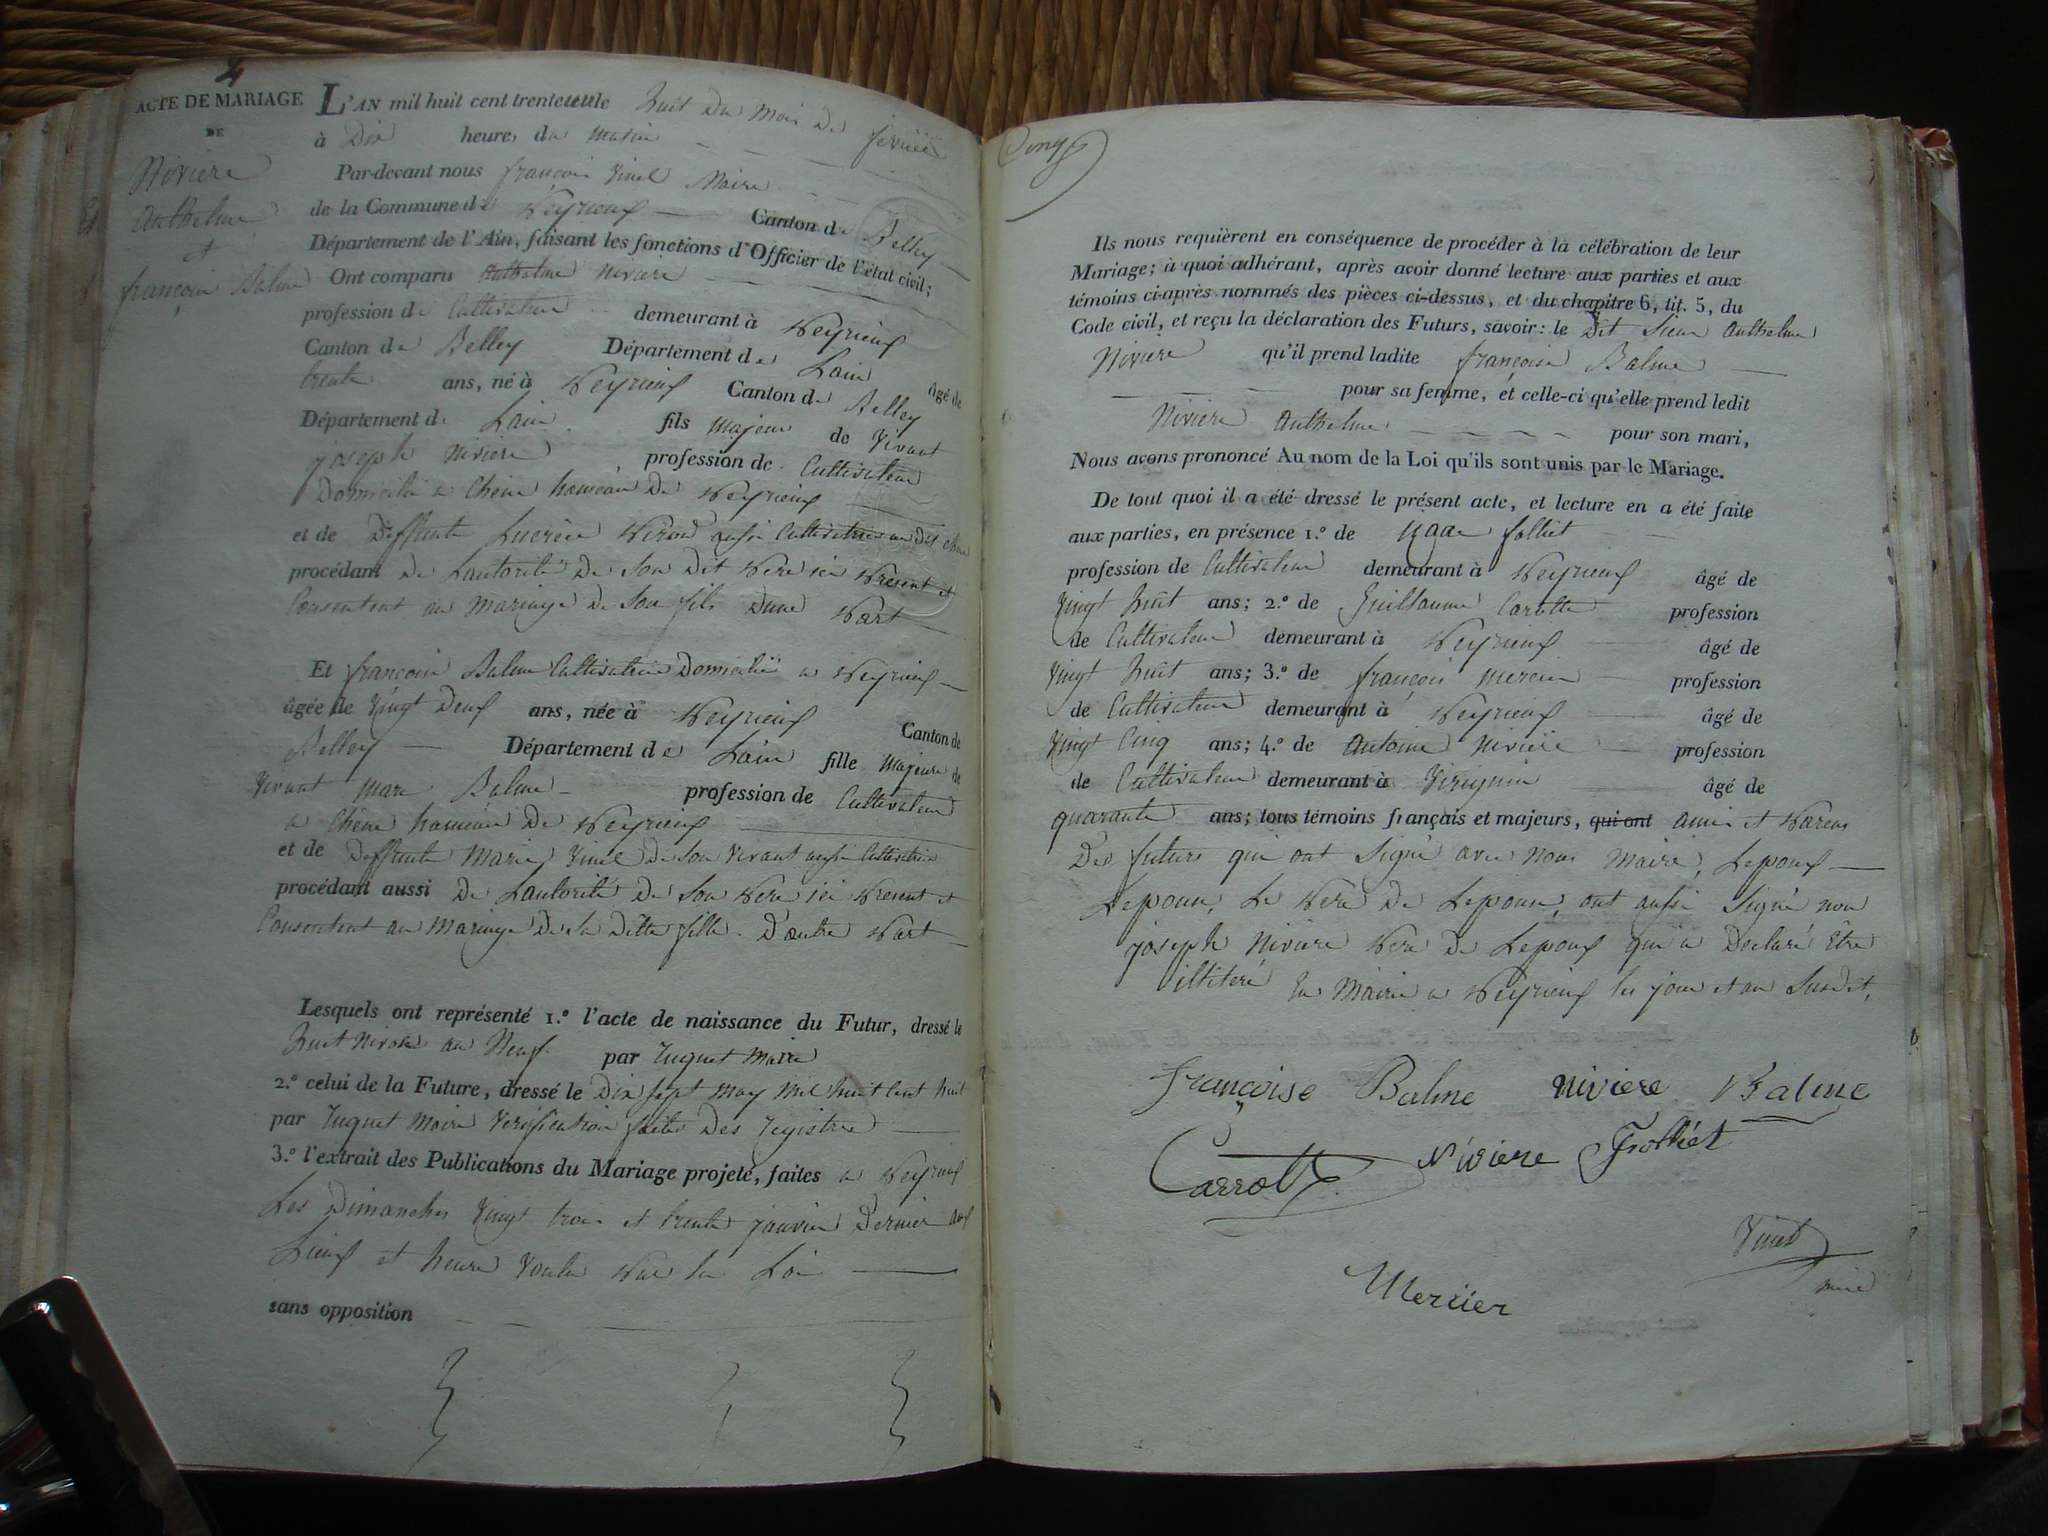 4
ACTE DE MARIAGE
DE
Niviere
Anthelme
et
françoise Balme
L'AN mil huit cent trente et le huit du mois de février
à Dix heures du matin
Par-devant nous françois Vinel Maire
de la Commune de Peyrieux Canton de Belley
Département de l'Ain, faisant les fonctions d'Officier de l'état civil;
Ont comparu Anthelme Niviere
profession de Cultivateur demeurant à Peyrieux
Canton de Belley Département de Lain âgé de
trente ans, né à Peyrieux Canton de Belley
Département de Lain fils majeur de Vivant
joseph Niviere profession de Cultivateur
Domicilié a Chêne hameau De Peyrieux
et de Deffunte Lucrèce aussi Cultivatrice au Dit
procédant De Lautorité De Son Dit Pere ici Present et
Consentent au Mariage De Son fils Dune Part
Et françoise Balme Cultivatrice Domiciliée a Peyrieux
âgée de Vingt Deux ans, née à Peyrieux Canton de
Belley Département de Lain fille Majeure de
Vivant Marc Balme profession de Cultivateur
a Chêne hameau De Peyrieux
et de Deffunte Marie Vinel De Son Vivant aussi Cultivatrice
procédant aussi De Lautorité De Son Pere ici Present et
Consentent au Mariage De Sa Ditte fille D'autre Part
Lesquels ont représenté 1.º l'acte de naissance du Futur, dressé le
huit Nivose an Neuf par Juguet Maire
2.º celui de la Future, dressé le Dix Sept May Mil huit Cent huit
par Juguet Maire Verification faite Des Registre
3.º l'extrait des Publications du Mariage projeté, faites a Peyrieux
Les Dimanches Vingt trois et trente janvier Dernier aux
Lieux et heure Voulu Par La Loi
sans opposition
Ils nous requièrent en conséquence de procéder à la célébration de leur
Mariage; à quoi adhérant, après avoir donné lecture aux parties et aux
témoins ci-après nommés des pièces ci-dessus, et du chapitre 6, tit. 5, du
Code civil, et reçu la déclaration des Futurs, savoir: le Dit Sieur Anthelme
Niviere qu'il prend ladite françoise Balme
pour sa femme, et celle-ci qu'elle prend ledit
Niviere Anthelme pour son mari,
Nous avons prononcé Au nom de la Loi qu'ils sont unis par le Mariage.
De tout quoi il a été dressé le présent acte, et lecture en a été faite
aux parties, en présence 1.º de folliet
profession de Cultivateur demeurant à Peyrieux âgé de
Vingt huit ans; 2.º de Guillaume Carotte profession
de Cultivateur demeurant à Peyrieux âgé de
Vingt huit ans; 3.º de françois Mercier profession
de Cultivateur demeurant à Peyrieux âgé de
Vingt Cinq ans; 4.º de Antoine Niviere profession
de Cultivateur demeurant à Virignin âgé de
quarante ans; tous témoins français et majeurs, qui ont amis et Parens
Des futurs qui ont Signé avec Nous Maire, Lepoux
Lepouse, Le Pere De Lepouse, ont aussi Signé non
joseph Niviere Pere De Lepoux qui a Declaré Etre
illiteré En Mairie a Peyrieux les jour et an Susdit,
françoise Balme Niviere Balme
Carrott Niviere Frolliet
Vinel
mire
Mercier